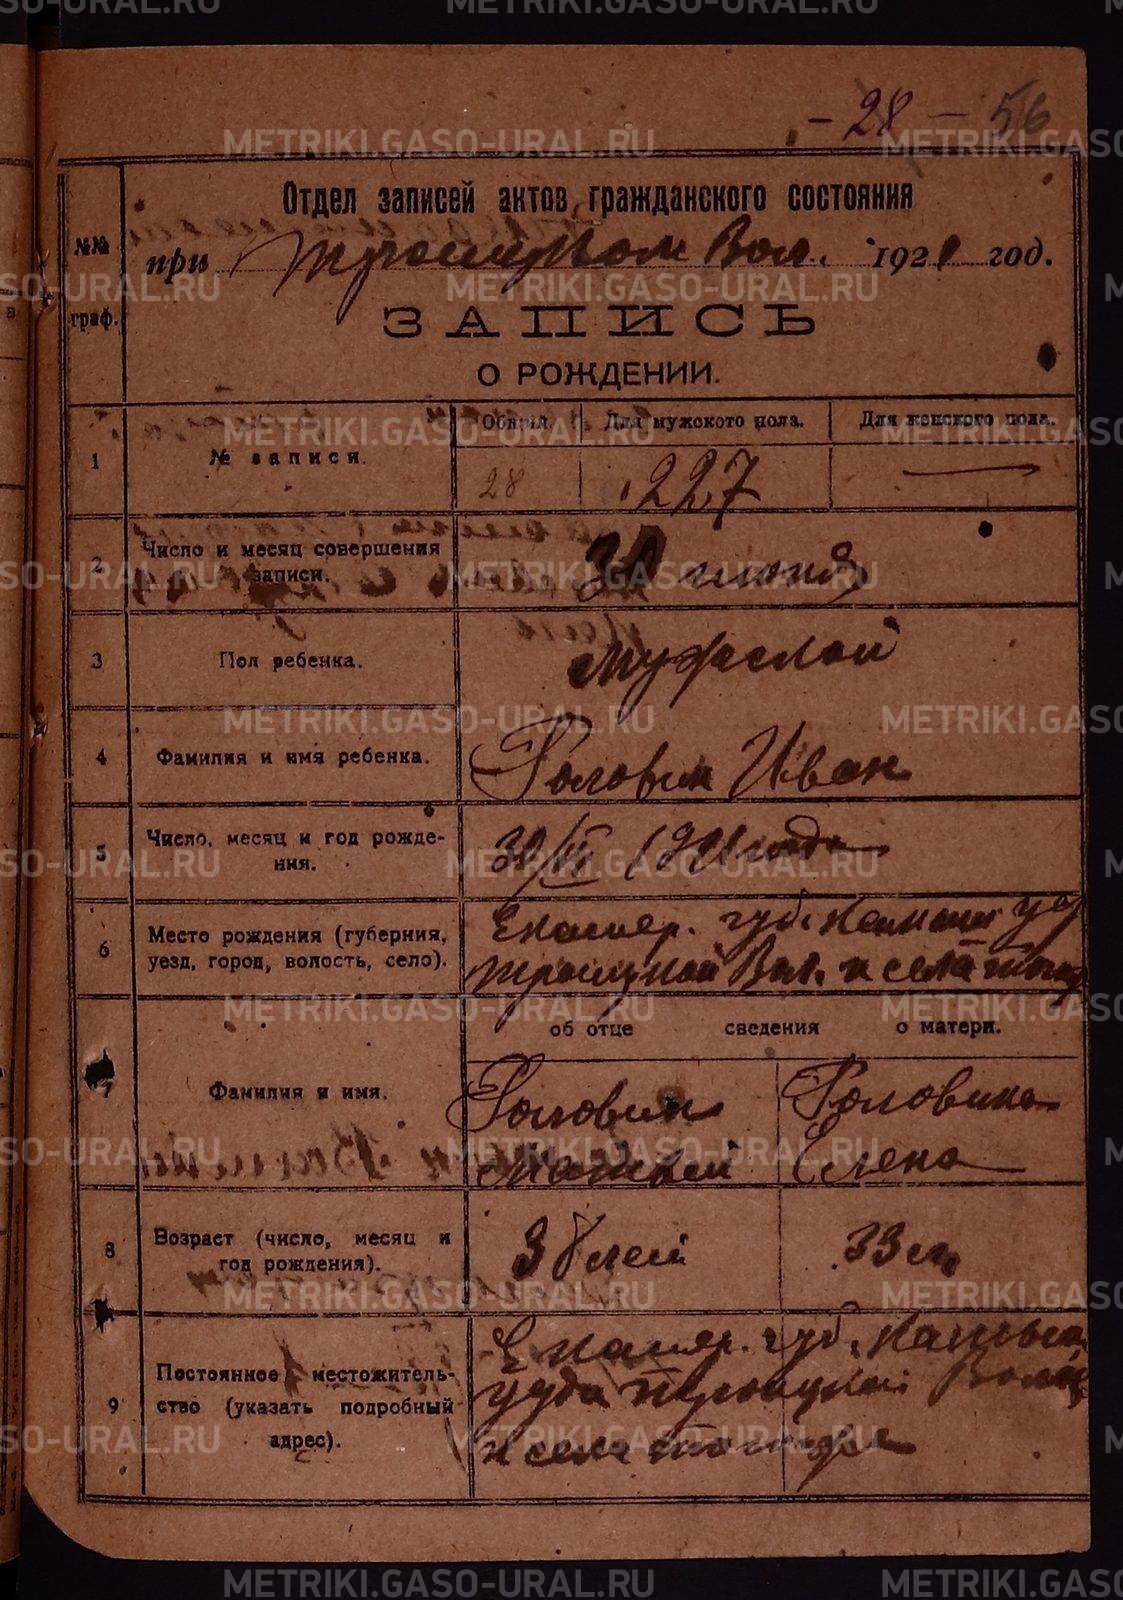 METRIKI.GASO-URAL.RU
- 28 - 56
Отдел записей актов гражданского состояния
№№ граф.
при Троицком Вол. 1921 год.
ЗАПИСЬ
О РОЖДЕНИИ.
1
№ записи.
Общий. Для мужского пола. Для женского пола.
28 227 —
2
Число и месяц совершения
записи.
30 июня
3
Пол ребенка.
Мужской
4
Фамилия и имя ребенка.
Головин Иван
5
Число, месяц и год рожде-
ния.
30/VI 1921 года
6
Место рождения (губерния,
уезд, город, волость, село).
Екатер. губ.
Вол. и села
об отце сведения о матери.
7
Фамилия и имя.
Головин Головина
Матвей Елена
8
Возраст (число, месяц и
год рождения).
38 лет 33 л.
9
Постоянное местожитель-
ство (указать подробный
адрес).
Екатер. губ.
Троицкой
и села того же